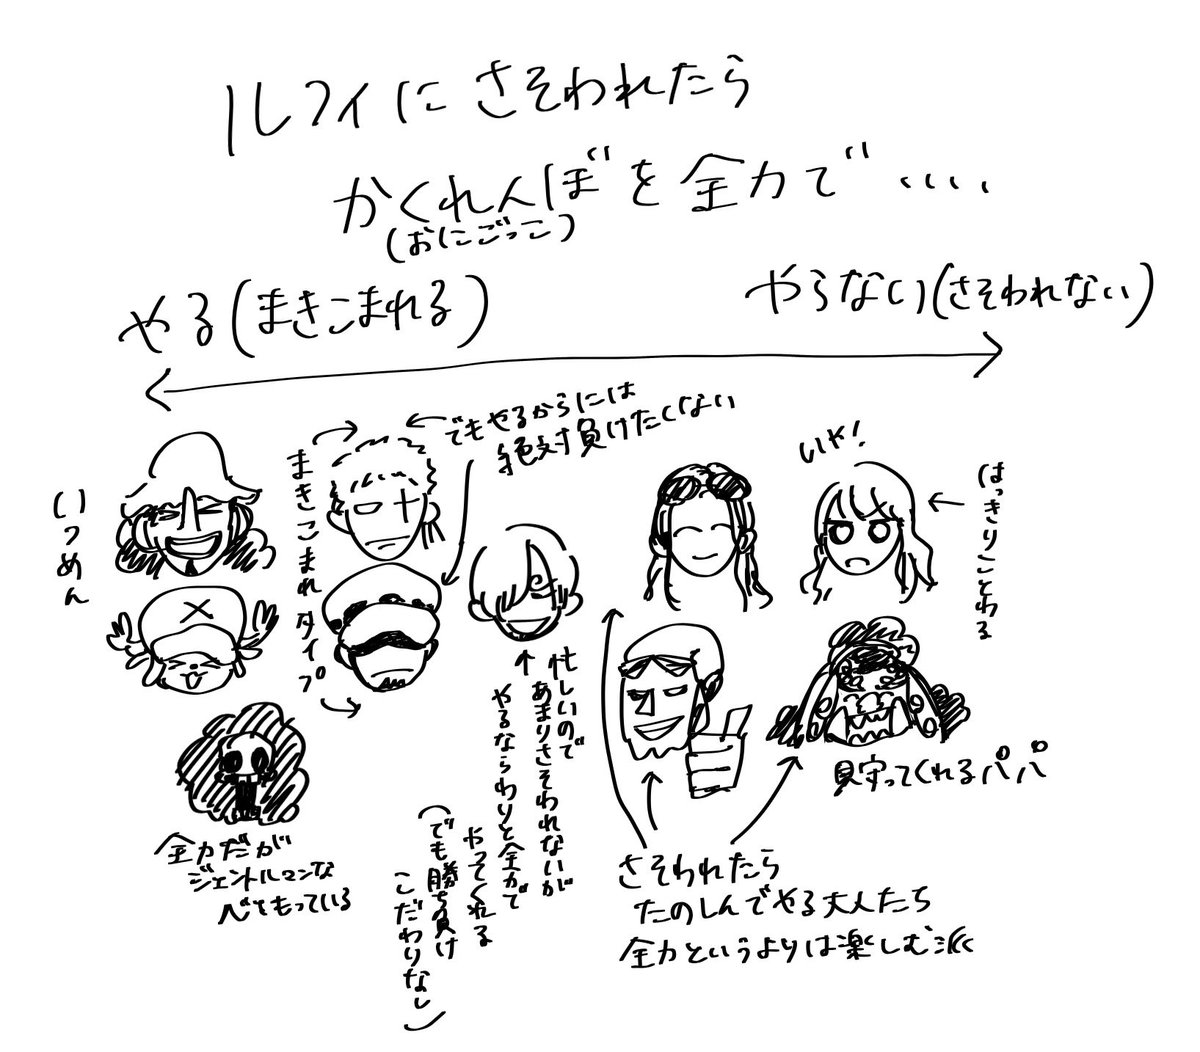 ルフィにさそわれたら
かくれんぼを全力で‥‥
(おにごっこ)
やる(まきこまれる)
やらない(さそわれない)
いつめん
まきこまれタイプ
でもやるからには
絶対負けたくない
いや!
はっきりことわる
全力だが
ジェントルマンな
心をもっている
忙しいので
あまりさそわれないが
やるならわりと全力で
やってくれる
(でも勝ち負け
こだわりなし)
見守ってくれるパパ
さそわれたら
たのしんでやる大人たち
全力というよりは楽しむ派